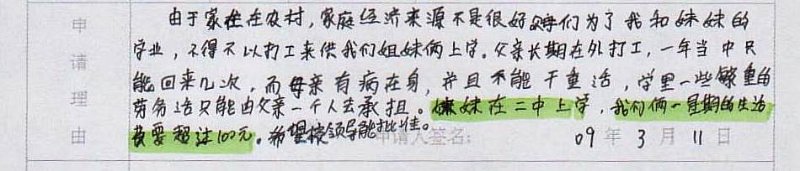 申请理由
由于家住在农村，家庭经济来源不是很好父母们为了我和妹妹的
学业，不得不以打工来供我们姐妹俩上学。父亲长期在外打工，一年当中只
能回来几次，而母亲有病在身，并且不能干重活，学里一些繁重的
劳务活只能由父亲一个人去承担。妹妹在二中上学，我们俩一星期的生活
费要超过100元。希望校领导能批准。
申请人签名： 09年3月11日